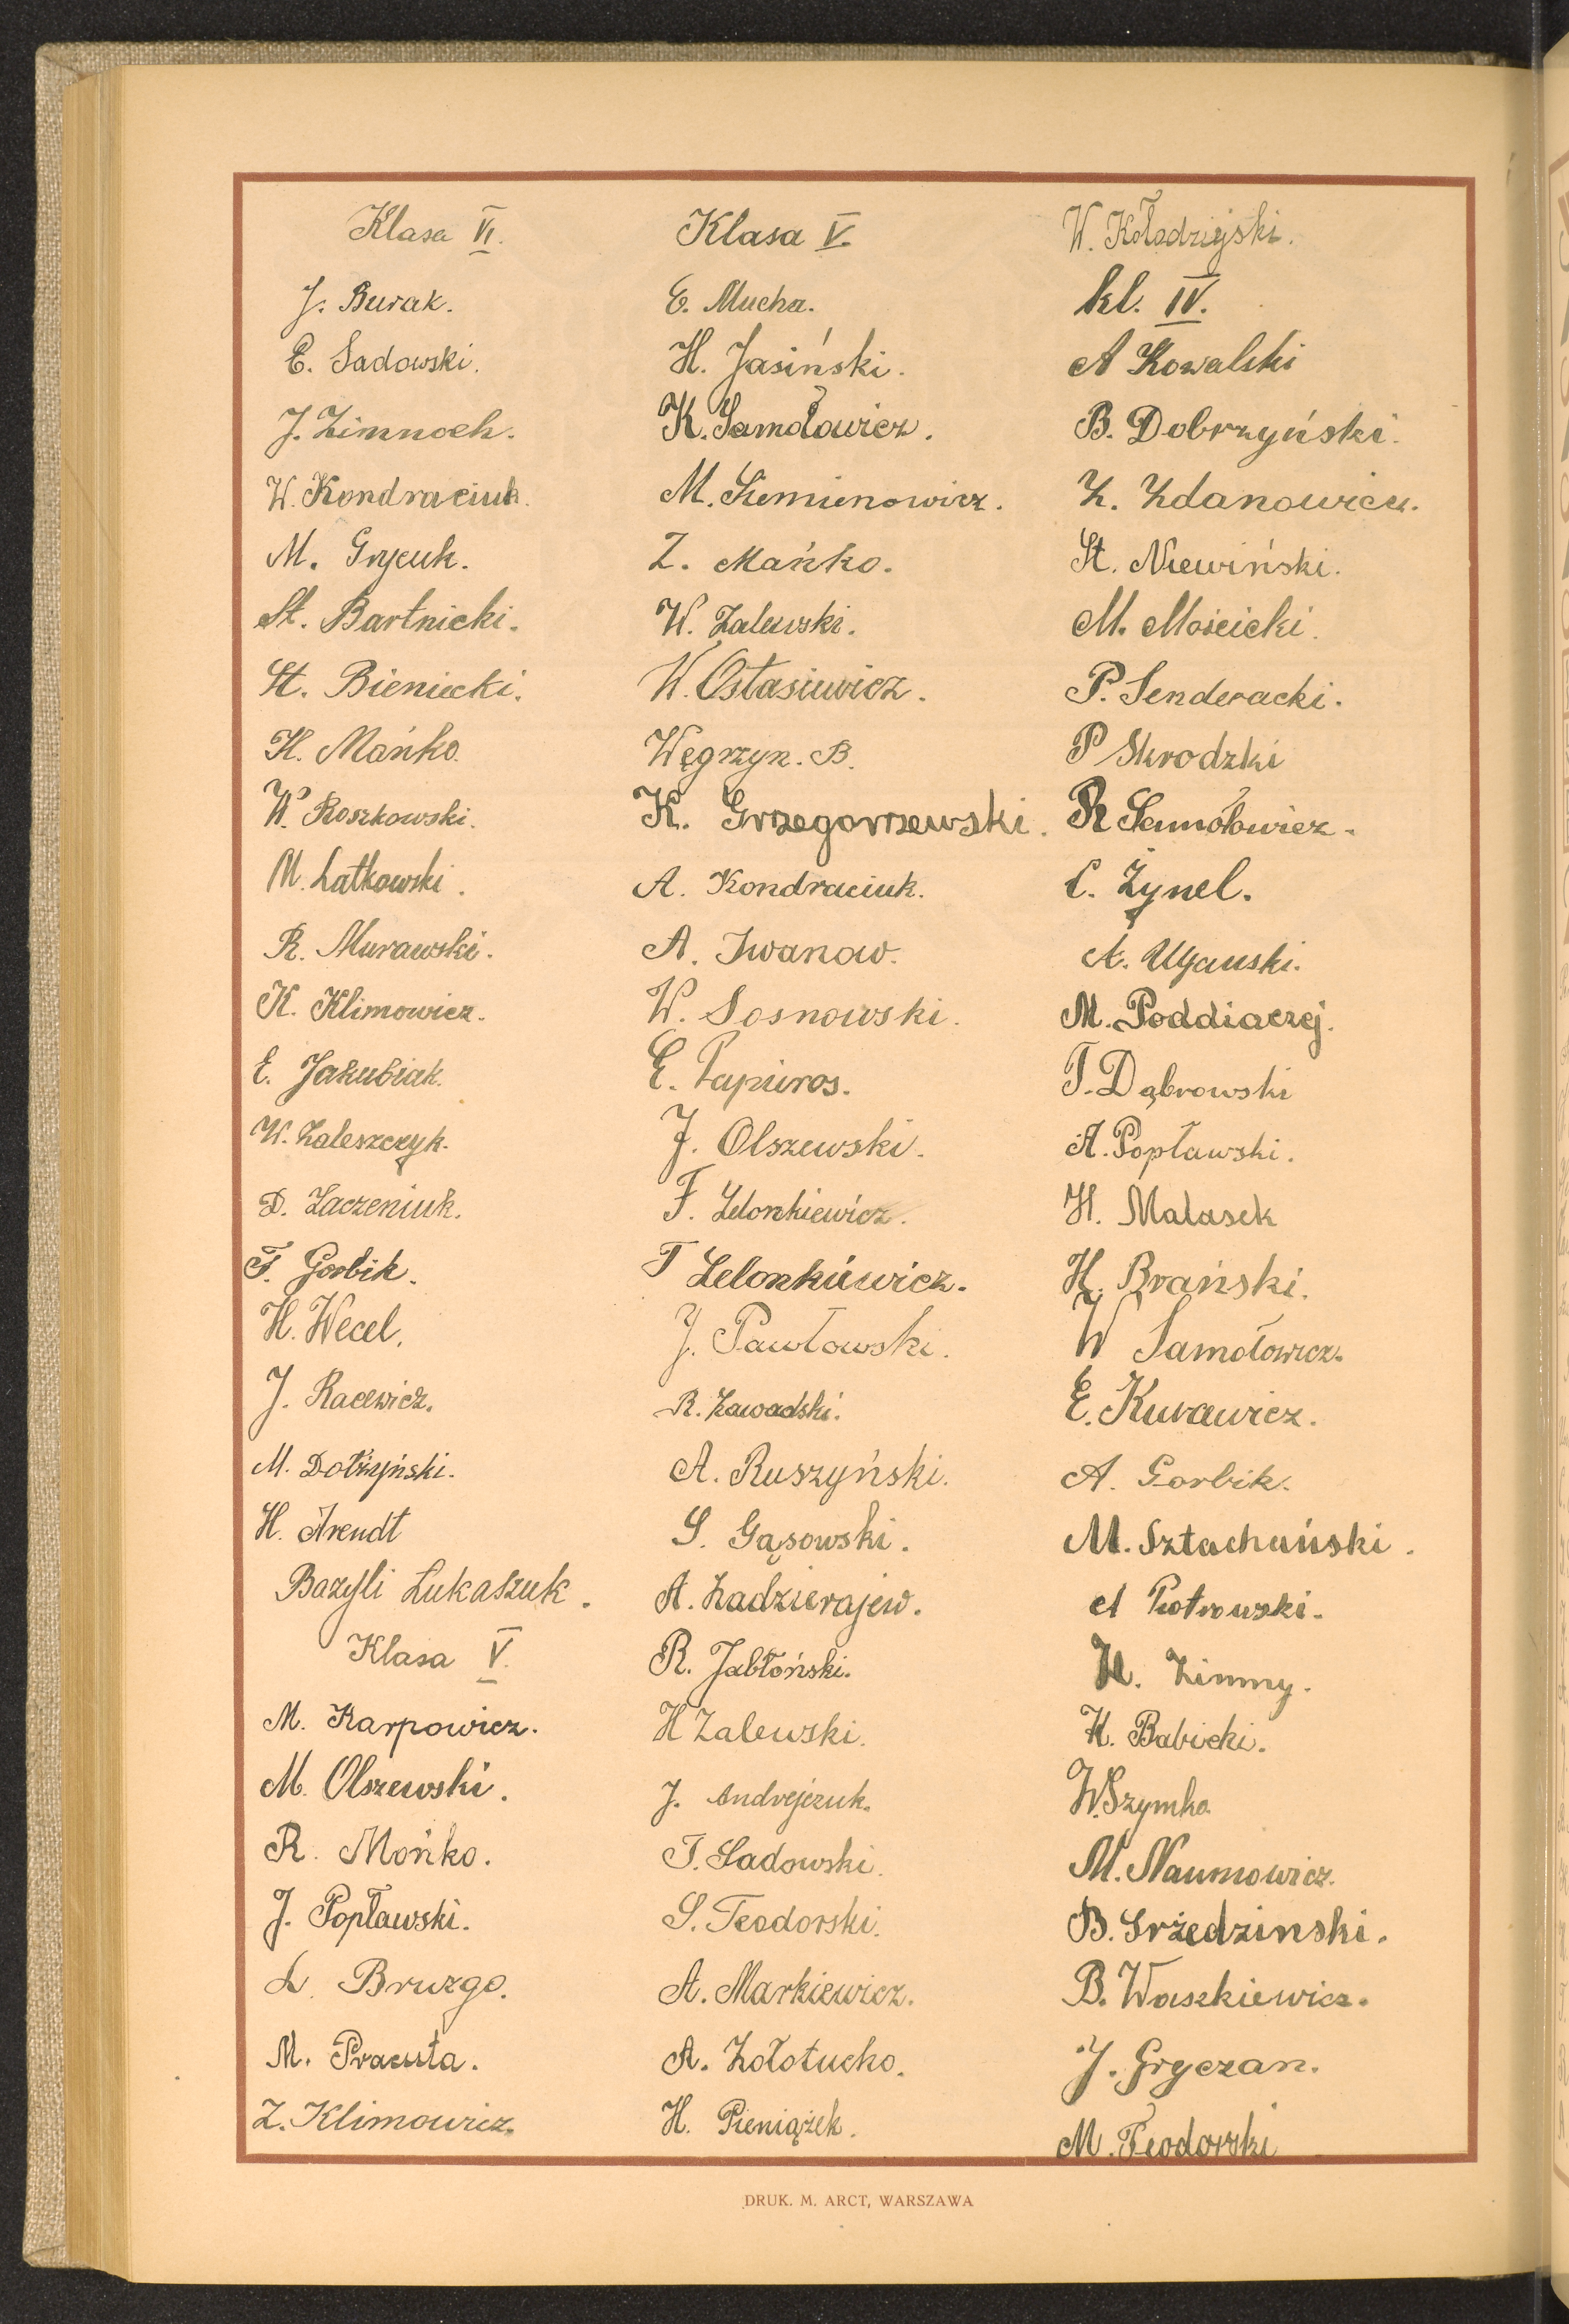 Klasa VI.
J. Burak.
E. Sadowski.
J. Zimnoch.
W. Kondraciuk.
M. Grycuk.
St. Bartnicki.
St. Bieniecki.
K. Mańko.
W. Roszkowski.
M. Łatkowski.
R. Murawski.
K. Klimowicz.
E. Jakubiak.
W. Zaleszczyk.
D. Zaczeniuk.
F. Gorbik.
H. Wecel.
J. Racewicz.
M. Dołżyński.
H. Arendt
Bazyli Łukaszuk.
Klasa V.
M. Karpowicz.
M. Olszewski.
R. Mońko.
J. Popławski.
L. Bruzgo.
M. Pracuta.
Z. Klimowicz.
Klasa V.
E. Mucha.
H. Jasiński.
K. Samołowicz.
M. Siemienowicz.
Z. Mańko.
W. Zalewski.
W. Ostasiewicz.
Węgrzyn. B.
K. Grzegorzewski.
A. Kondraciuk.
A. Iwanow.
W. Sosnowski.
E. Papieros.
J. Olszewski.
F. Lelonkiewicz.
T Lelonkiewicz.
J. Pawłowski.
R. Zawadski.
A. Ruszyński.
S. Gąsowski.
A. Zadzierajew.
R. Jabłoński.
H Zalewski.
J. Andrejczuk.
T. Sadowski.
S. Teodorski.
A. Markiewicz.
A. Zołotucho.
H. Pieniążek.
W. Kołodziejski.
kl. IV.
A Kowalski
B. Dobrzyński.
Z. Zdanowicz.
St. Niewiński.
M. Mościcki.
P. Senderacki.
P Skrodzki
R Samołowicz.
C. Żynel.
A. Ujawski.
M. Poddiaczej.
T. Dąbrowski
A. Popławski.
H. Malasek
H. Brański.
W Samołowicz.
E. Kurawicz.
A. Gorbik.
M. Sztachański.
A Piotrowski.
H. Zimny.
K. Babicki.
W. Szymko
M. Naumowicz.
B. Grzedzinski.
B. Waszkiewicz.
J. Gryczan.
M. Teodorski
DRUK. M. ARCT, WARSZAWA